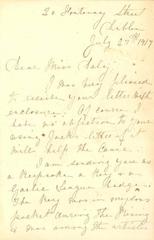 20 Fontenoy Street
Dublin
July 24th 1917
Dear Miss Daly,
I was very pleased
to receive your letter with
enclosure. Of course I
have no objection to your
using Jack's letter if it
will help the cause.
I am sending you as
a Keepsake a Boy's
Gaelic League Badge.
The Boy wore in my son's
pocket during the Rising
& was among the articles